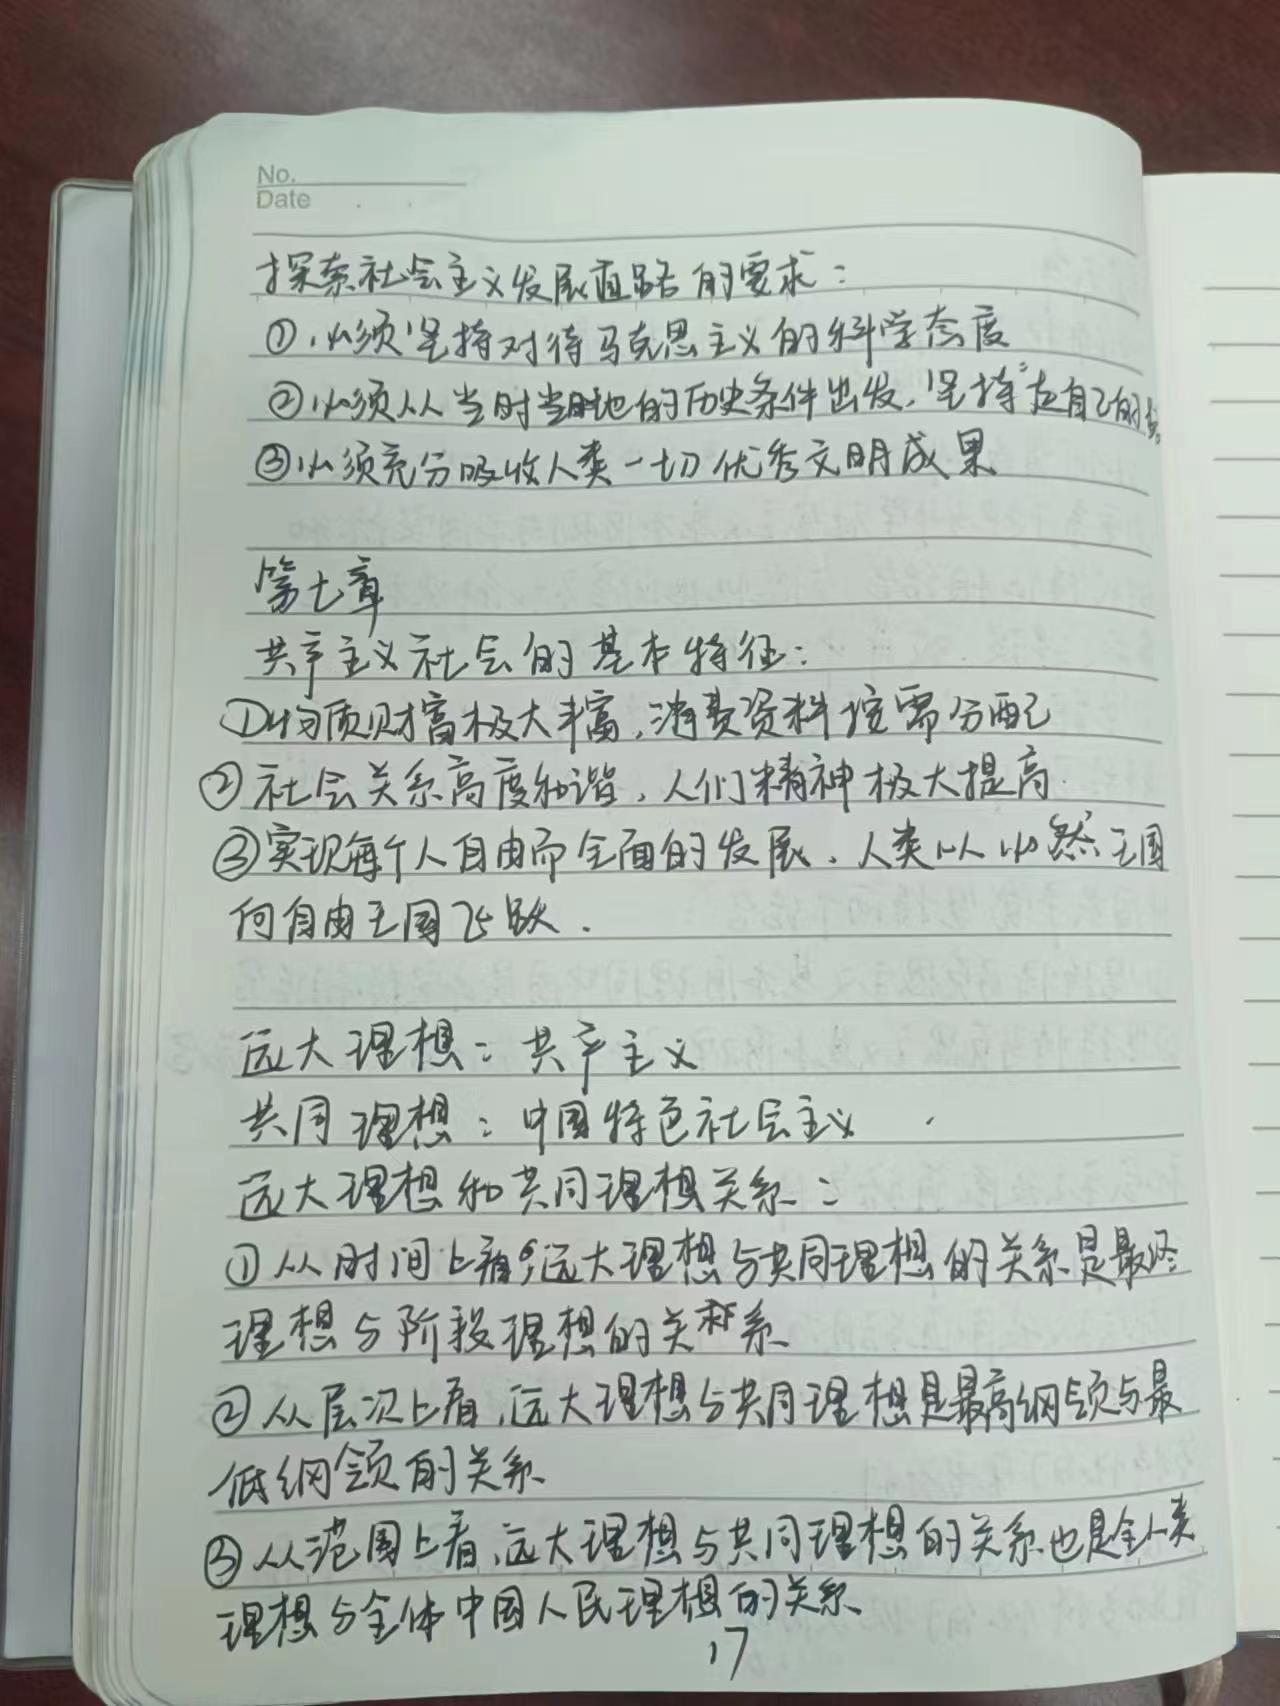 No.
Date
探索社会主义发展道路的要求：
①必须坚持对待马克思主义的科学态度
②必须从当时当地的历史条件出发，坚持"走自己的路"
③必须充分吸收人类一切优秀文明成果
第七章
共产主义社会的基本特征：
①物质财富极大丰富，消费资料按需分配
②社会关系高度和谐，人们精神极大提高
③实现每个人自由而全面的发展，人类从必然王国
向自由王国飞跃．
远大理想：共产主义
共同理想：中国特色社会主义
远大理想和共同理想关系：
①从时间上看，远大理想与共同理想的关系是最终
理想与阶段理想的关系
②从层次上看，远大理想与共同理想是最高纲领与最
低纲领的关系
③从范围上看，远大理想与共同理想的关系也是全人类
理想与全体中国人民理想的关系
17